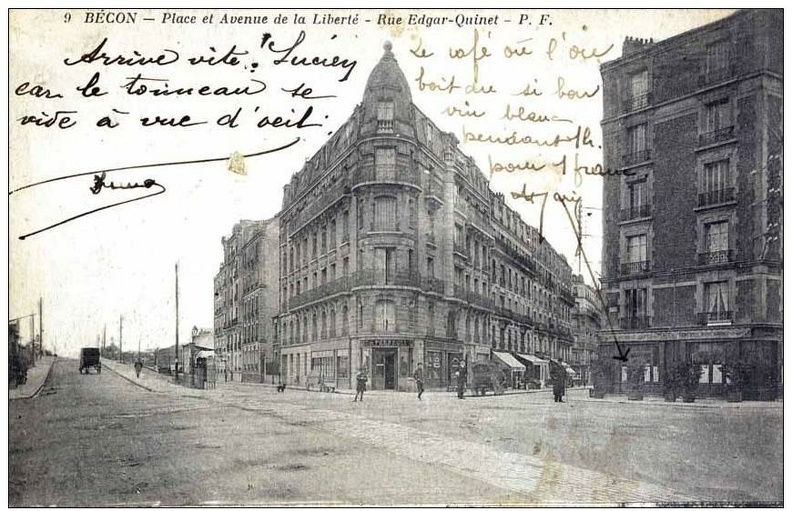 9 BÉCON — Place et Avenue de la Liberté - Rue Edgar-Quinet - P. F.
Arrive vite! Lucien
car le tonneau se
vide à vue d'œil!
Le café où l'on
boit du si bon
vin blanc
pendant 1h.
pour 1 franc